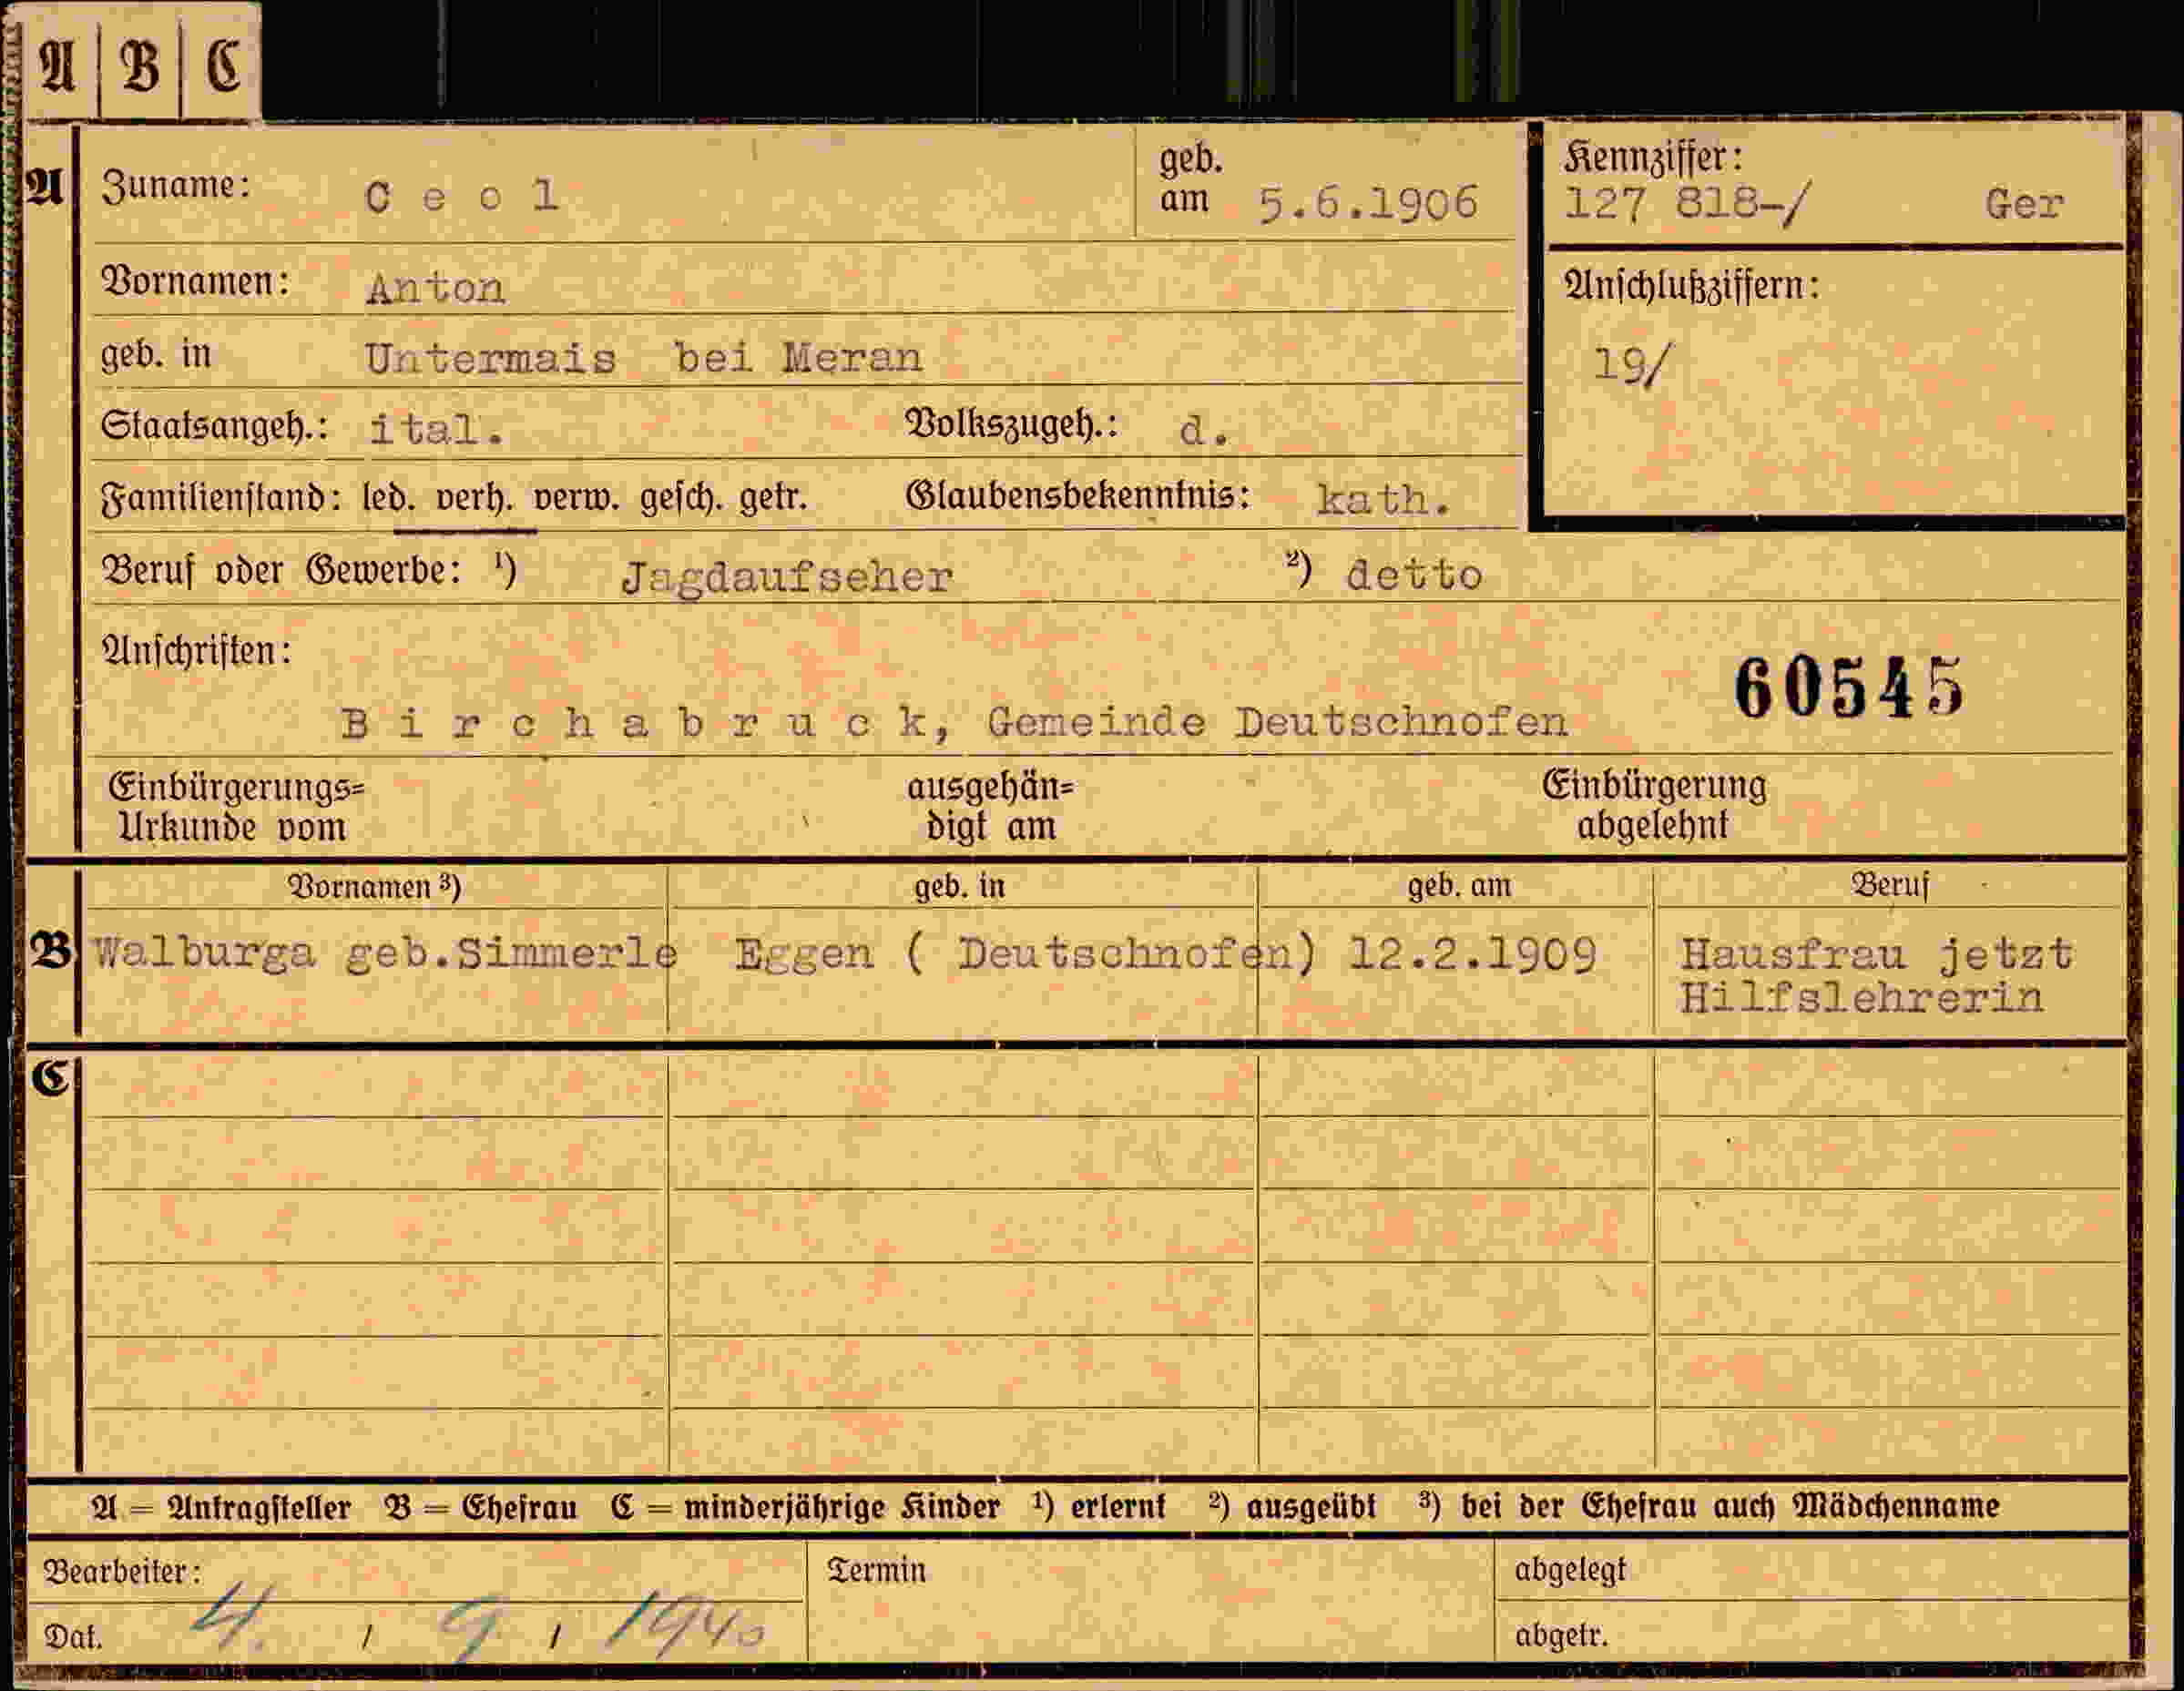 A | B | C
A Zuname: Ceol geb. am 5.6.1906 Kennziffer: 127 818-/ Ger
Vornamen: Anton Anschlußziffern:
geb. in Untermais bei Meran 19/
Staatsangeh.: ital. Volkszugeh.: d.
Familienstand: led. verh. verw. gesch. getr. Glaubensbekenntnis: kath.
Beruf oder Gewerbe: ¹) Jagdaufseher ²) detto
Anschriften:
60545
Birchabruck, Gemeinde Deutschnofen
Einbürgerungs= ausgehän= Einbürgerung
Urkunde vom digt am abgelehnt
Vornamen ³) geb. in geb. am Beruf
B Walburga geb.Simmerle Eggen ( Deutschnofen) 12.2.1909 Hausfrau jetzt
Hilfslehrerin
C
A = Antragsteller B = Ehefrau C = minderjährige Kinder ¹) erlernt ²) ausgeübt ³) bei der Ehefrau auch Mädchenname
Bearbeiter: Termin abgelegt
Dat. 4. / 9 / 1940 abgetr.